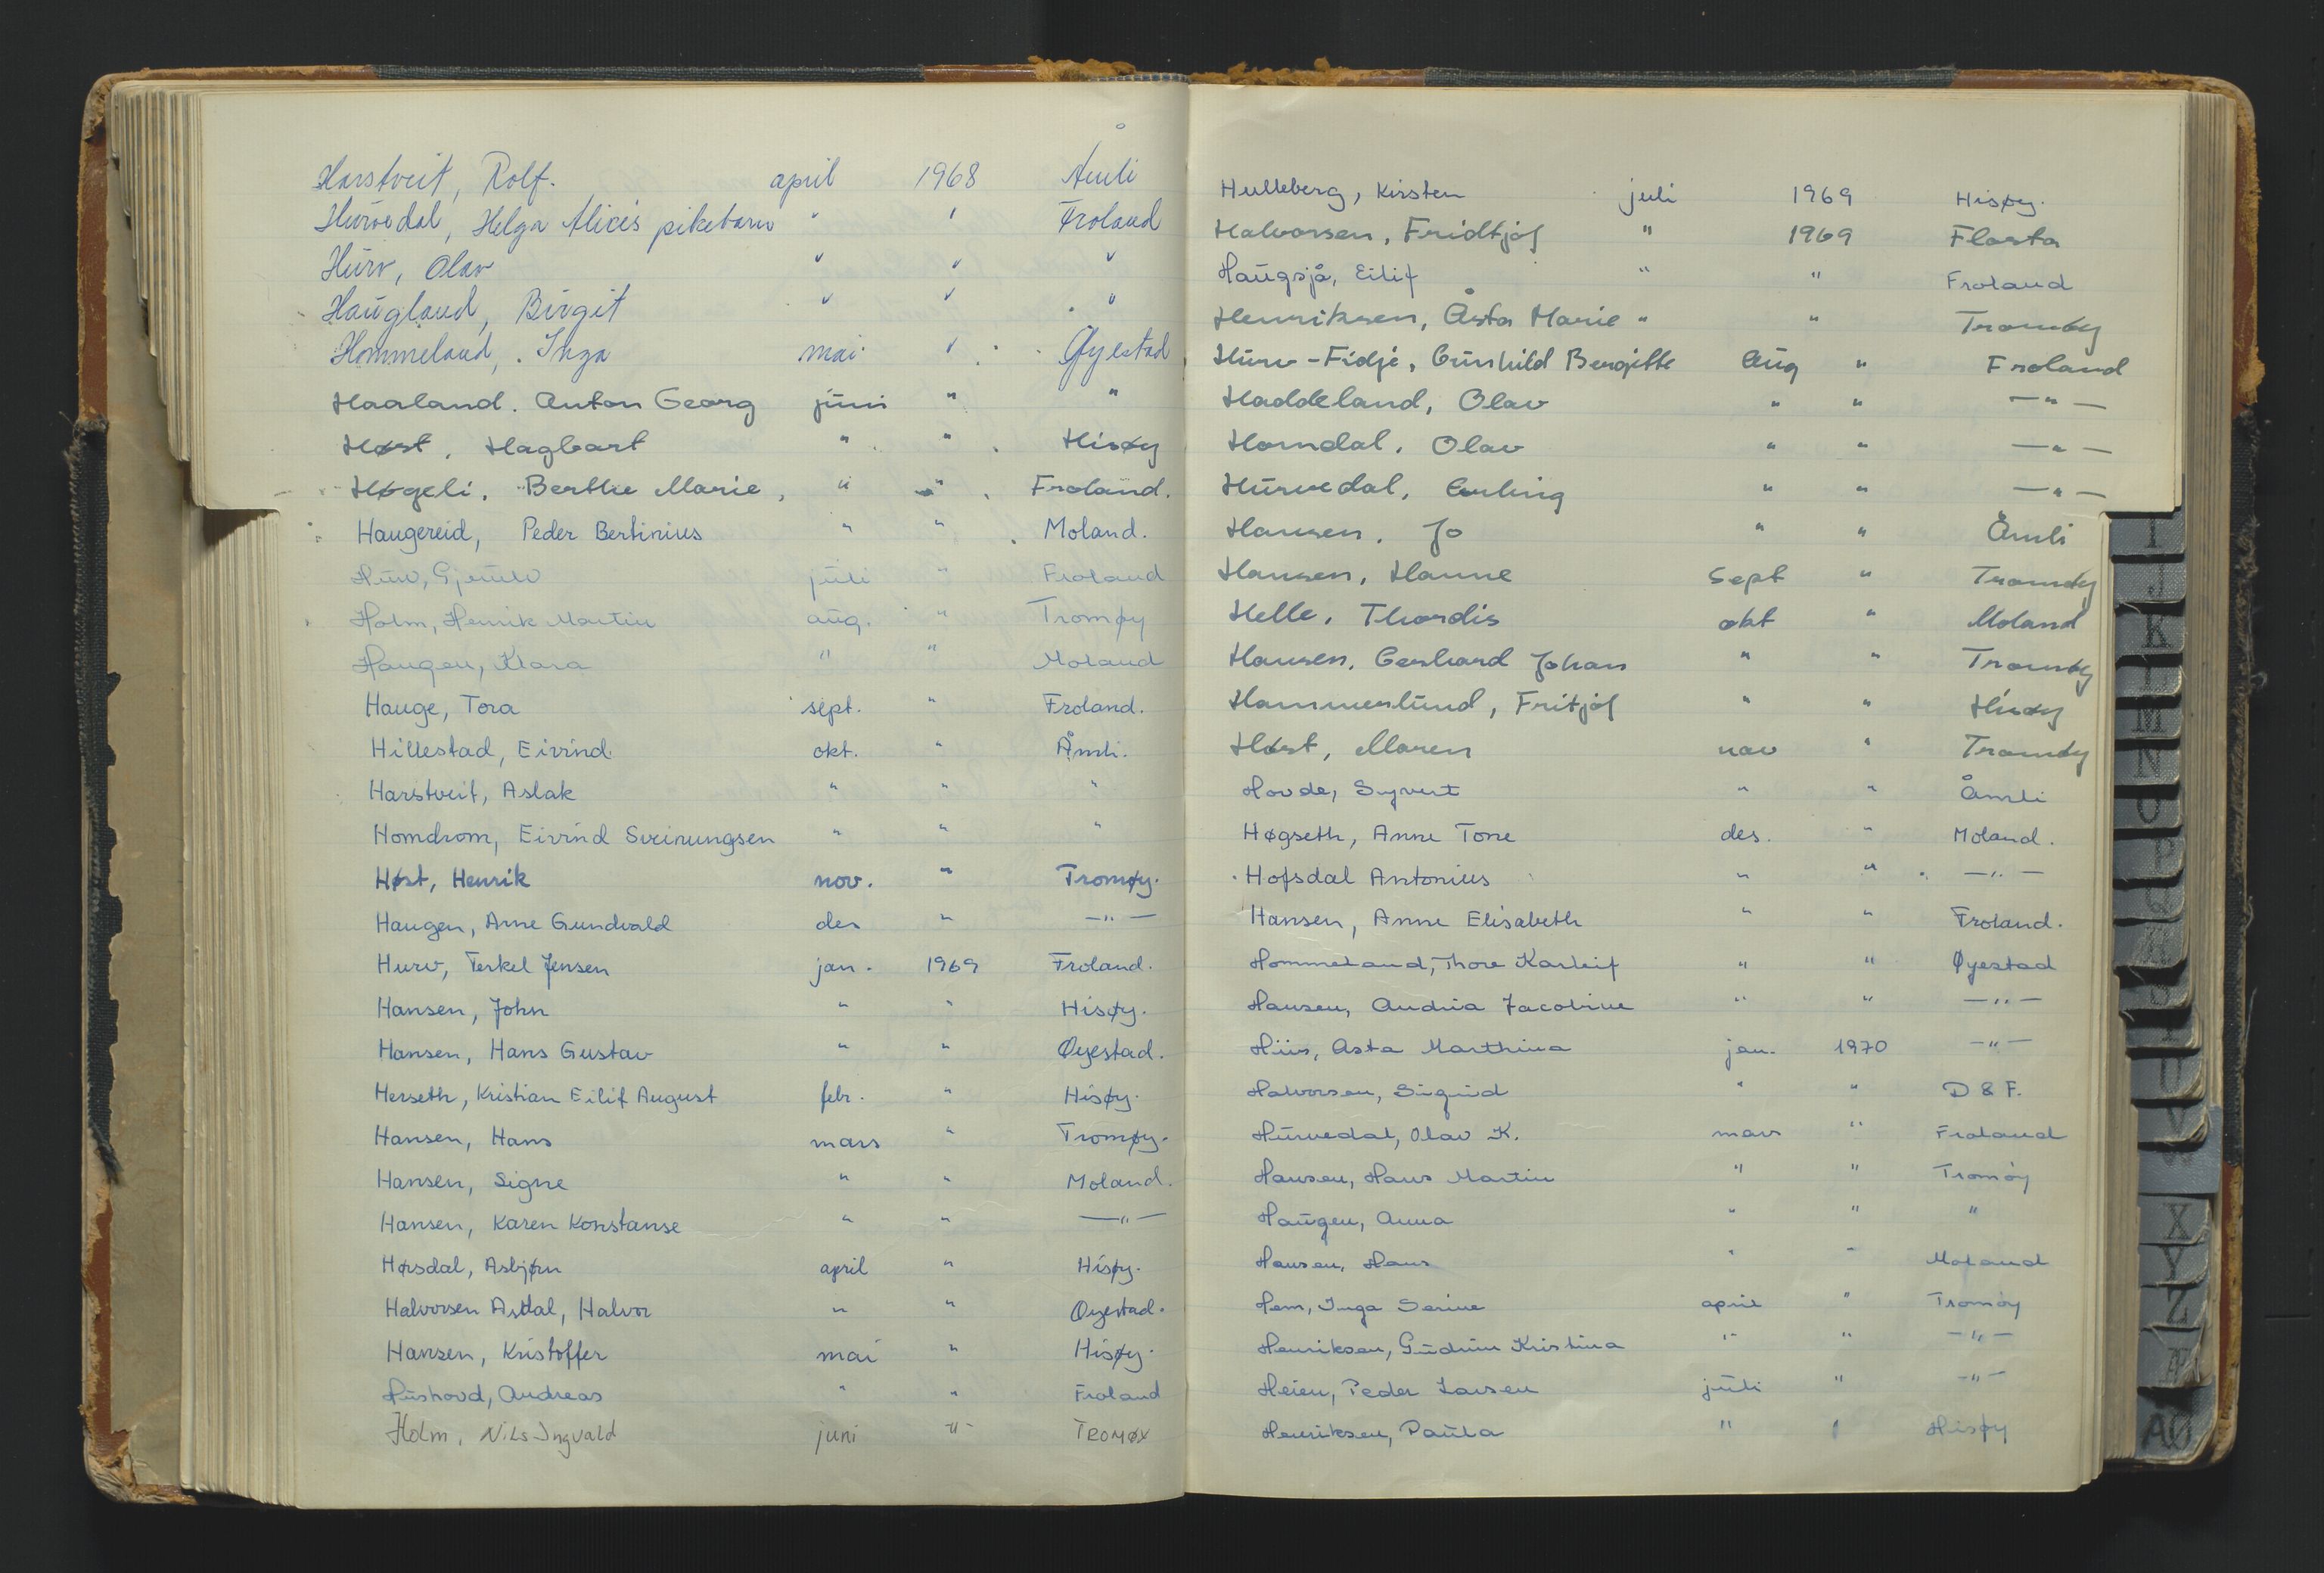 Harstveit, Rolf. april 1968 Åmli
Hurvedal, Helga Alice's pikebarn " " Froland
Hurv, Olav " " "
Haugland, Birgit " " "
Hommeland, Inga mai " Øyestad
Haaland. Anton Georg juni " "
Høst, Hagbart " " Hisøy
Høgeli, Berthe Marie, " " Froland.
Haugereid, Peder Bertinius " " Moland.
Hurv, Gjerulv juli " Froland
Holm, Henrik Martin aug. " Tromøy
Haugen, Klara " " Moland
Hauge, Tora sept. " Froland.
Hillestad, Eivind. okt. " Åmli.
Harstveit, Aslak " " "
Homdrom, Eivind Sveinungsen " " "
Høst, Henrik nov. " Tromøy.
Haugen, Arne Gundvald des " —"—
Hurv, Terkel Jensen jan. 1969 Froland.
Hansen, John " " Hisøy.
Hansen, Hans Gustav " " Øyestad.
Herseth, Kristian Eilif August febr. " Hisøy.
Hansen, Hans mars " Tromøy.
Hansen, Signe " " Moland.
Hansen, Karen Konstanse " " —"—
Hørsdal, Asbjørn april " Hisøy.
Halvorsen Asdal, Halvor " " Øyestad.
Hansen, Kristoffer mai " Hisøy.
Hushovd, Andreas " " Froland
Holm, Nils Ingvald juni -"- TROMØY
Hulleberg, Kirsten juli 1969 Hisøy.
Halvorsen, Fridtjof " 1969 Flosta
Haugsjå, Eilif " " Froland
Henriksen, Åsta Marie " " Tromøy
Hurv-Fidje, Gunhild Bergitte Aug " Froland
Haddeland, Olav " " —"—
Horndal, Olav " " —"—
Hurvedal, Erling " " —"—
Hansen, Jo " " Åmli
Hansen, Hanne Sept " Tromøy
Helle, Thordis okt " Moland
Hansen, Gerhard Johan " " Tromøy
Hammerlund, Fritjof " " Hisøy
Høst, Maren nov " Tromøy
Hovde, Syvert " " Åmli
Høgseth, Anne Tone des. " Moland.
Hofsdal Antonius " " —"—
Hansen, Anne Elisabeth " " Froland.
Hommeland, Thore Karleif " " Øyestad
Hansen, Andrea Jacobine " " —"—
Hiis, Asta Marthina jan. 1970 —"—
Halvorsen, Sigrid " " D & F.
Hurvedal, Olav K. mars " Froland
Hansen, Hans Martin " " Tromøy
Haugen, Anna " " "
Hansen, Hans " " Moland
Hem, Inga Serine april " Tromøy
Henriksen, Gudrun Kristina " " —"—
Heien, Peder Larsen juli " —"—
Henriksen, Paula " " Hisøy
I
J
K
M
N
O
P
Q
U
V
W
X
Y
Z
Æ
AÖ